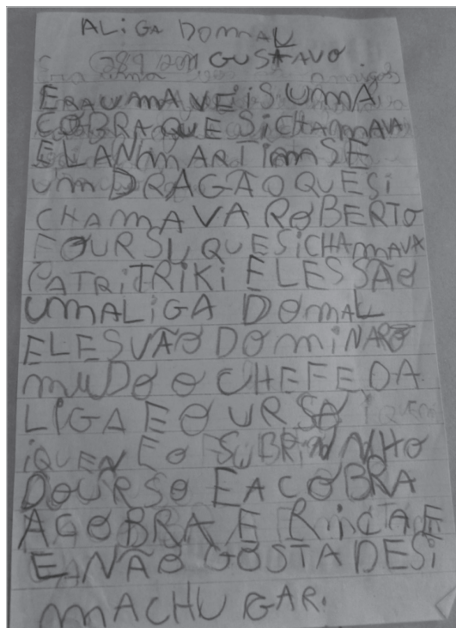 ALIGA DOMAL
289/2011 GUSTAVO
ERAUMAVEISUMA
COBRAQUESICHAMAVA
ELANIMARTIMSE
UMDRAGÃOQUESI
CHAMAVA ROBERTO
EOURSUQUESICHAMAVA
PATRITRIKI ELESSÃO
UMALIGA DOMAL
ELESVÃO DOMINARO
MUDO O CHEFEDA
LIGAEOURSO
IQUEN EO SUBRINNHO
DOURSO EACOBRA
ACOBRAE RINCTAE
EANÃO GOSTADESI
MACHUGAR.